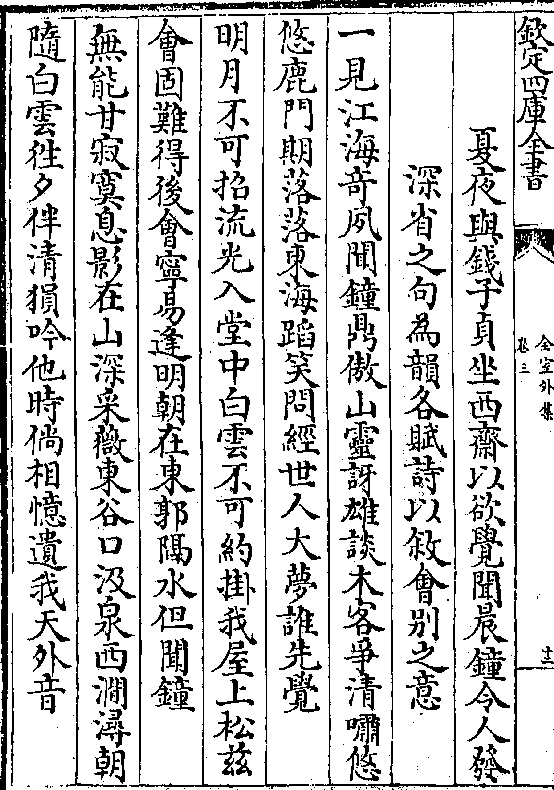 欽定四庫全書
全室外集
卷三
十三
夏夜與錢子貞坐西齋以欲覺聞晨鐘令人發
深省之句為韻各賦詩以敘會別之意
一見江海奇夙聞鐘鼎傲山靈訝雄談木客爭清嘯悠
悠鹿門期落落東海蹈笑問經世人大夢誰先覺
明月不可招流光入堂中白雲不可約掛我屋上松茲
會固難得後會寧易逢明朝在東郭隔水但聞鐘
無能甘寂寞息影在山深采薇東谷口汲泉西澗潯朝
隨白雲徃夕伴清猿吟他時倘相憶遺我天外音